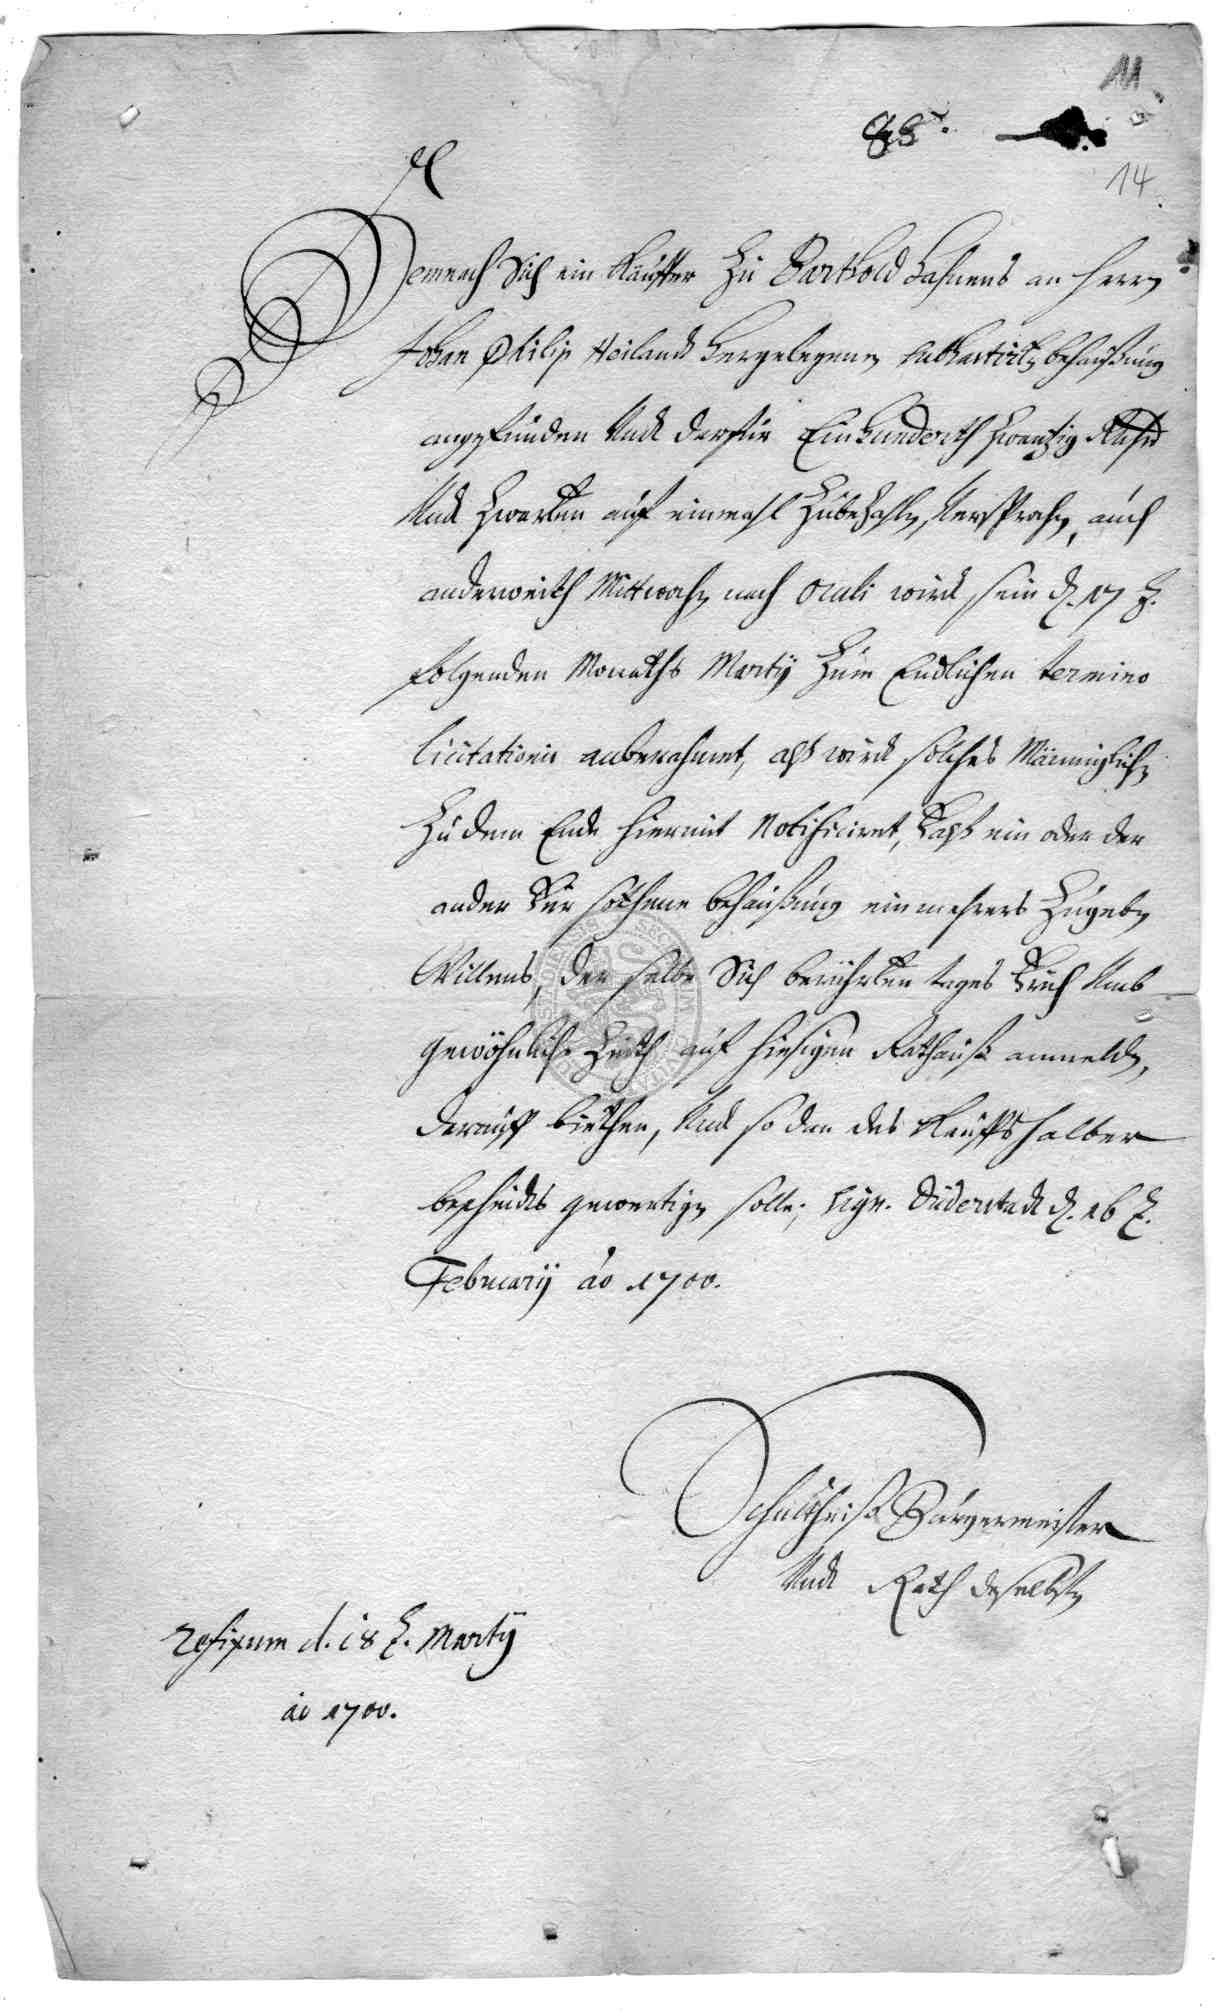 11
88.
14
Demnach Sich ein Käuffer Zu Barthold Hahnens an Herrn
Johan Philip Heiland hergelegenen subhastirten behaußung
angefunden Undt darfür Einhunderth Zwantzig Rthlr
Undt Zwarten auf einmahl Zubezahlen, Versprochen, auch
anderweith Mittwochen nach Oculi wird sein d. 17 t.
folgenden Monaths Martÿ Zum Endlichen termino
licitationis anberahmet, alß wird solches Männiglichen
Zu dem Ende hiermit Notificiret, daß ein oder der
ander für sothane behaußung ein mehrers Zugeben
Willens, der selbe Sich berührten tages früh Umb
gewöhnliche Zeith auf hiesigen Rathauß anmelden,
darauff biethen, Undt so dan des Kauffs halber
bescheidts gewertigen solle; Sign. Duderstadt d. 26 t.
Februarÿ ao 1700.
Schultheiß Bürgermeister
Undt Rath daselbsten
refixum d. 18 t. Martÿ
ao 1700.